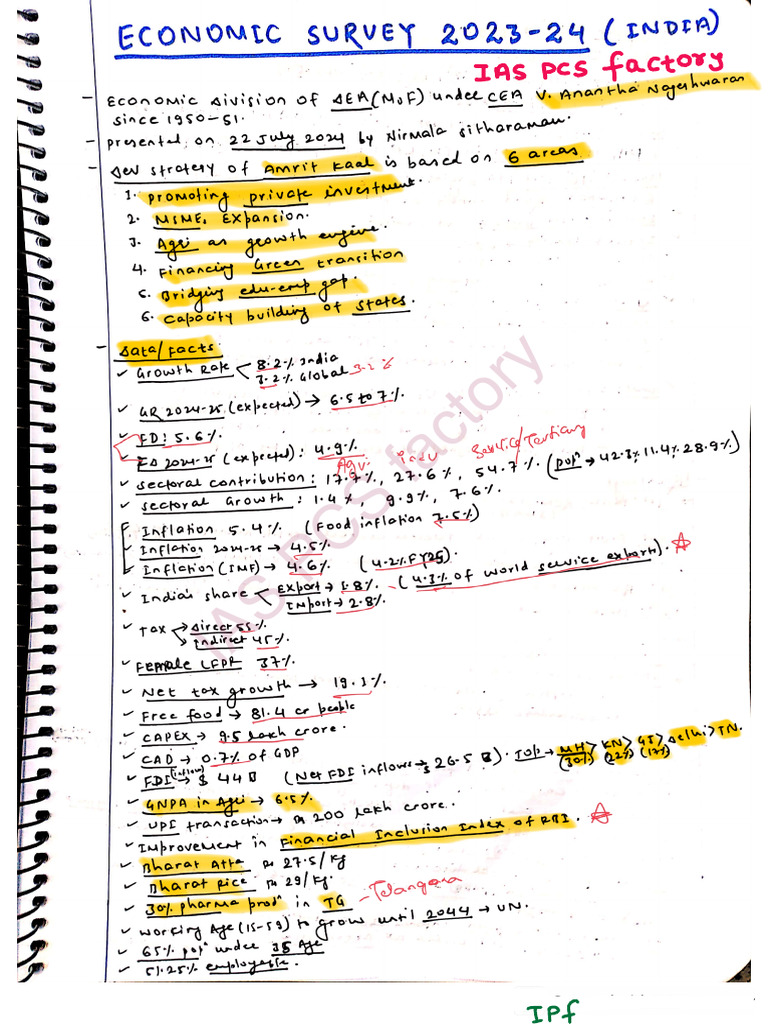 ECONOMIC SURVEY 2023-24 (INDIA)
IAS PCS factory
- Economic division of DEA (MoF) under CEA V. Anantha Nageshwaran
since 1950-51.
- presented on 22 July 2024 by Nirmala Sitharaman.
- Dev stratery of Amrit Kaal is based on 6 areas
1. Promoting private investment.
2. MSME. Expansion.
3. Agri as growth engine.
4. Financing Green transition
5. Bridging edu-emp gap.
6. Capacity building of States.
- Data/Facts
✓ Growth Rate < 8.2% India
3.2% Global 3.2%
✓ GR 2024-25 (expected) → 6.5 to 7%
✓ FD: 5.6%
✓ FD 2024-25 (expected): 4.9%
Agri. indu Service/Tertiary
✓ Sectoral contribution: 17.7%, 27.6%, 54.7%. (popⁿ → 42.3%, 11.4%, 28.9%)
✓ Sectoral Growth: 1.4%, 9.9%, 7.6%.
Inflation 5.4% (Food inflation 7.5%)
Inflation 2024-25 → 4.5%
Inflation (IMF) → 4.6% (4.2% FY25).
✓ India's share < Export → 1.8% - (4.3% of world service exports). ☆
Import → 2.8%
✓ Tax → Direct 55%
Indirect 45%.
✓ Female LFPR 37%
✓ Net tax growth → 19.1%.
✓ Free food → 81.4 cr people
✓ CAPEX → 9.5 lakh crore.
✓ CAD → 0.7% of GDP
✓ FDI (inflow) → $ 44 B (Net FDI inflows → $ 26.5 B). TOP → MH > KN > GJ > Delhi > TN.
(30%) (22%) (17%)
✓ GNPA in Agri → 6.5%
✓ UPI transaction → ₨ 200 lakh crore.
✓ Improvement in Financial Inclusion Index of RBI. ☆
✓ Bharat Atta ₨ 27.5/kg
✓ Bharat Rice ₨ 29/kg.
✓ 30% pharma prodⁿ in TG - Telangana
✓ Working Age (15-59) to grow until 2044 → UN.
✓ 65% popⁿ under 35 Age
✓ 51.25% employable.
IAS PCS factory
IPf